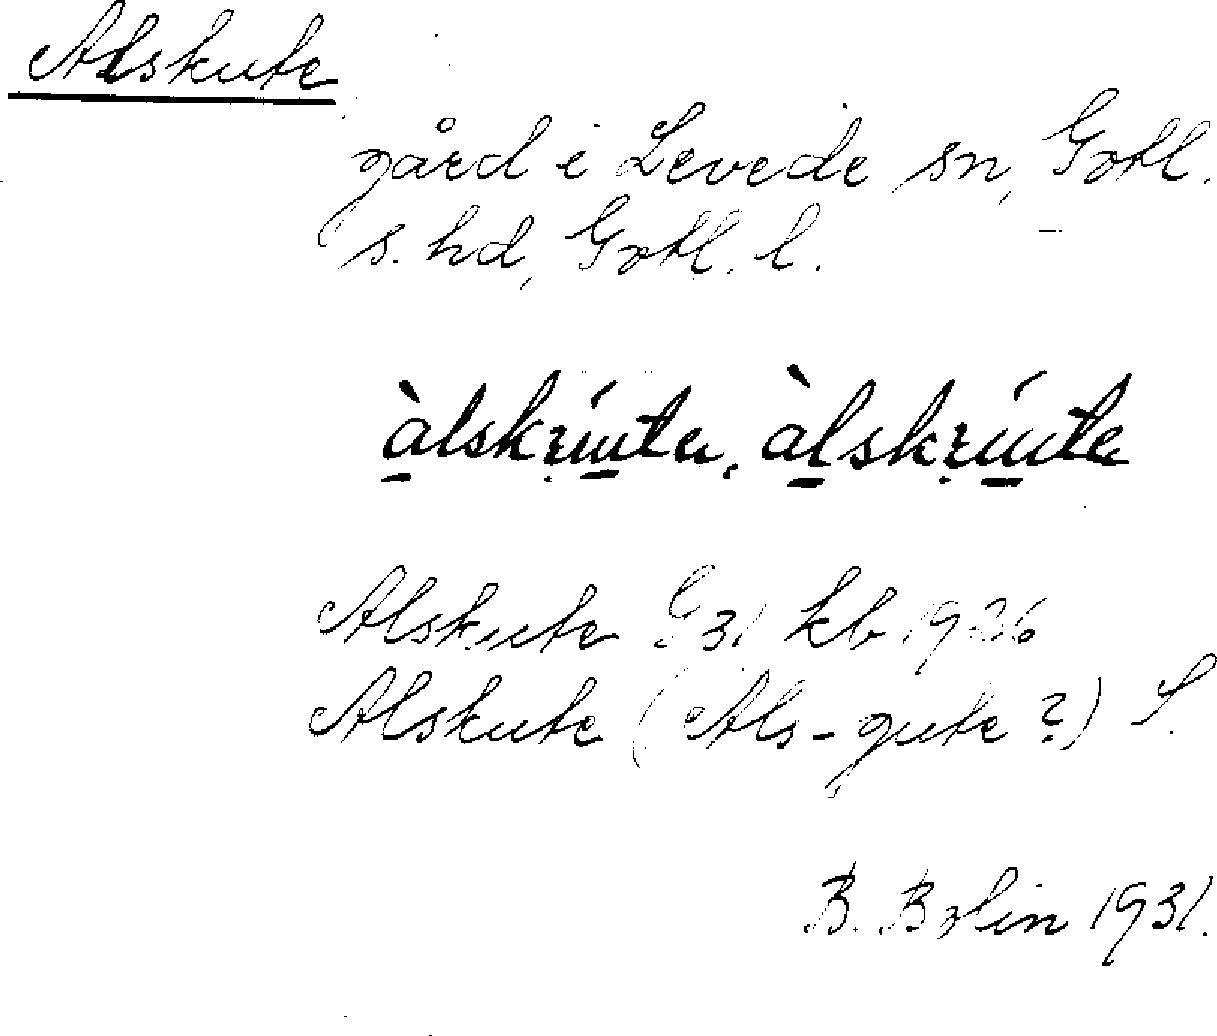 Alskute
gård i Levede sn, Gotl.
s. hd, Gotl. l.
Alskute G 31 kb 1926
Alskute (Als-gute?) S.
B. Bolin 1931.